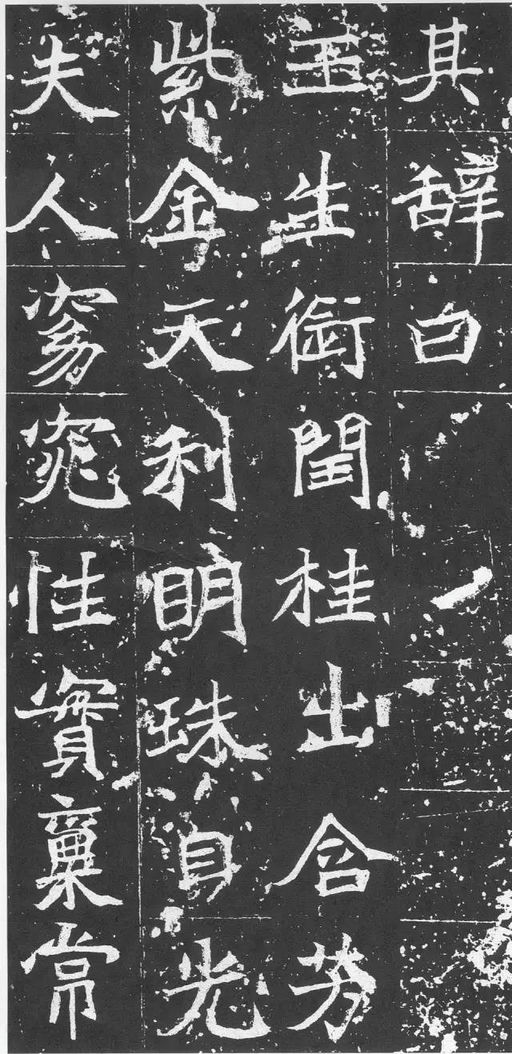 其辞曰
玉生銜閏桂出含芳
紫金天利明珠自光
夫人窈窕性實稟常